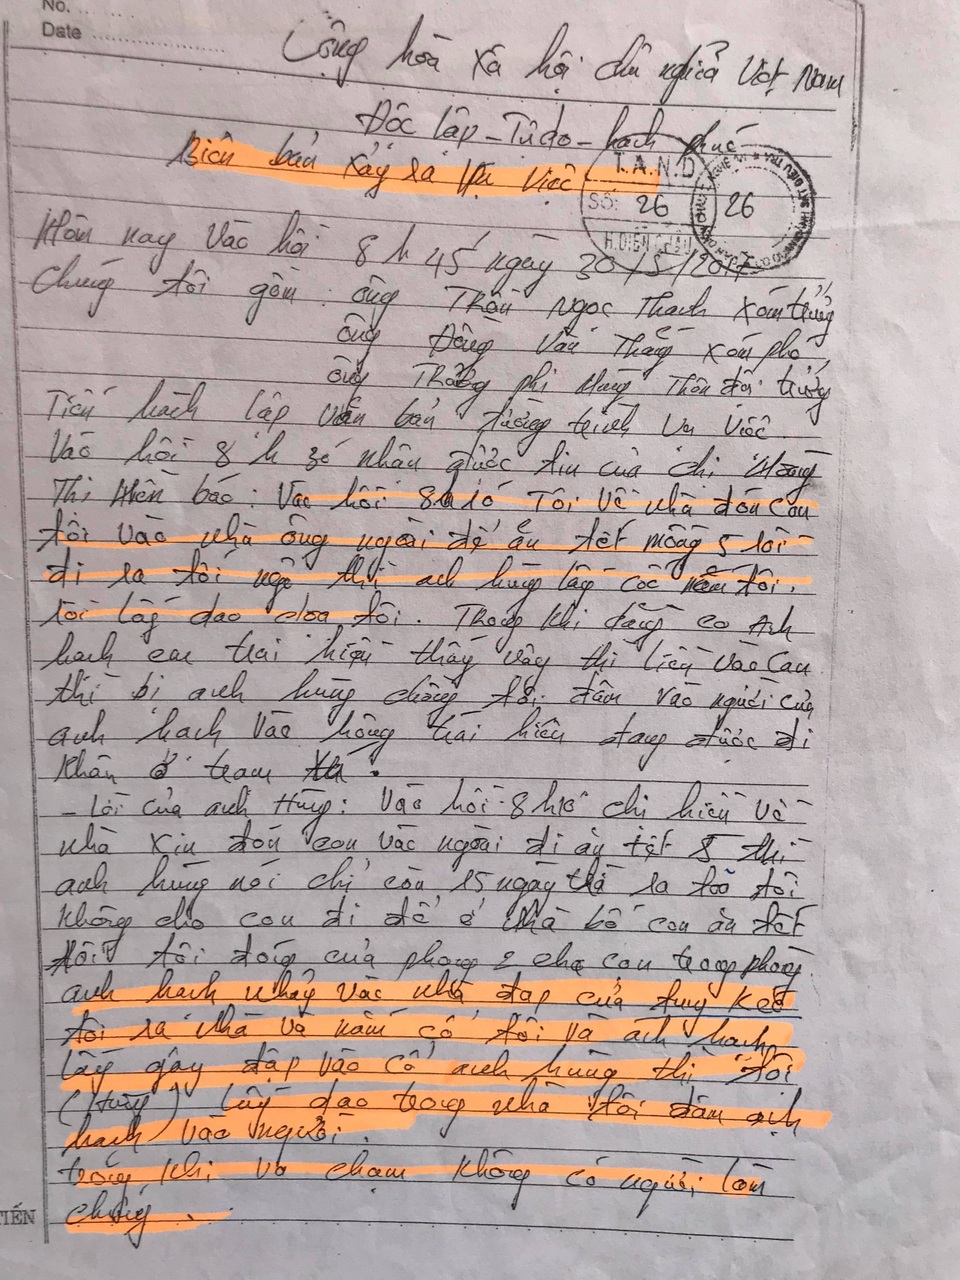 No. ....
Date ....................
Cộng hòa xã hội chủ nghĩa Việt Nam
Độc lập - Tự do - hạch phúc
Biên bản xảy ra vụ việc
T.A.N.D
SỐ: 26
H.DIỄN CHÂU
26
Hôm nay vào hồi 8h 45' ngày 30/5/2017
Chúng tôi gồm: ông Trần Ngọc Thạch xóm trưởng
ông Đồng Văn Thắng xóm phó
ông Trương phi Hùng Thôn đội trưởng
Tiến hành lập văn bản tường trình vụ việc
Vào hồi 8h 30 nhận được tin của chị Hoàng
Thị Hiền báo: Vào hồi 8h10 Tôi về nhà đón con
tôi vào nhà ông ngoài để ăn tết mồng 5 rồi
đi ra tới ngõ thì anh hùng lấy cốc ném tôi.
rồi lấy dao dọa tôi. Trong khi đằng co Anh
hạnh em trai hiện thấy vậy thì liền vào can
thì bị anh hùng chồng tôi đâm vào người của
anh hạnh vào hông trái hiện đang được đi
khán ở trạm
- Lời của anh Hùng: Vào hồi 8h10' chị hiền về
nhà xin đón con vào ngoài đi ăn tết 5 thì
anh hùng nói chỉ còn 15 ngày ra toà tôi
không cho con đi để ở nhà bố con ăn tết
rồi tôi đóng cửa phòng 2 cha con trong phòng
anh hạnh nhảy vào nhà đạp cửa tung kéo
tôi ra nhà và nắm cổ tôi và anh hạnh
lấy gậy đập vào cổ anh hùng thì tôi
(Hùng) lấy dao trong nhà tôi đâm anh
hạnh vào người.
trong khi va chạm không có người làm
chứng.
TIẾN